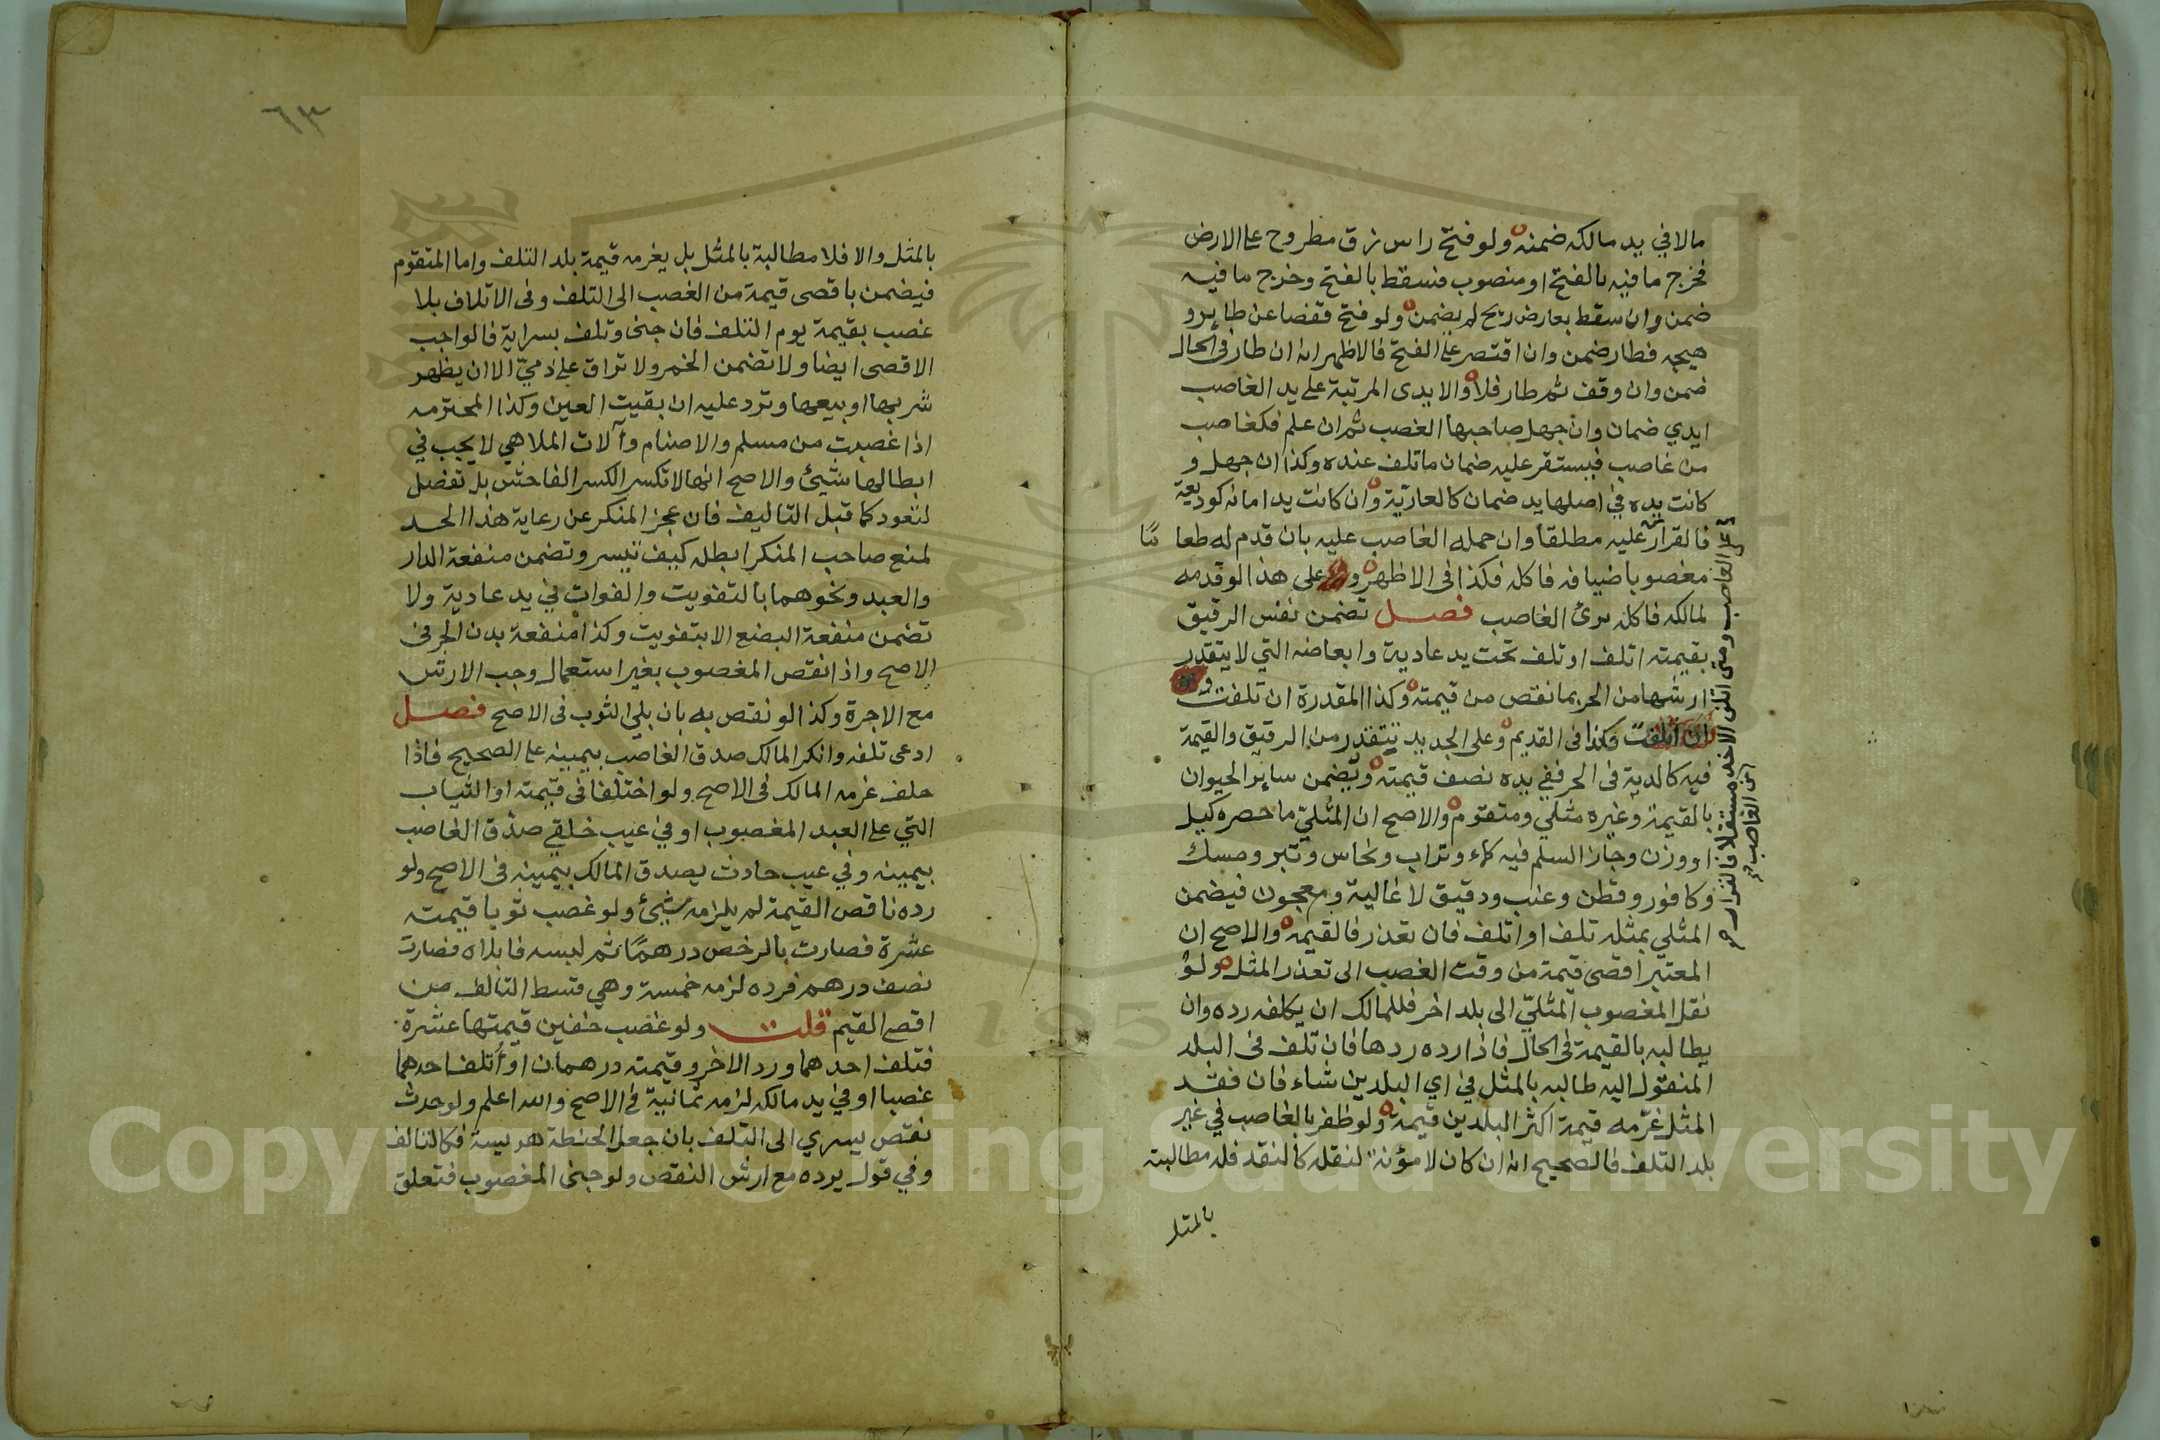 مالا في يد مالكه ضمنه ولو فتح راس زق مطروح على الارض
فخرج ما فيه بالفتح او منصوب فسقط بالفتح وخرج ما فيه
ضمن وان سقط بعارض ريح لم يضمن ولو فتح قفصا عن طاير و
هيجه فطار ضمن وان اقتصر على الفتح فالاظهر انه ان طار في الحال
ضمن وان وقف ثم طار فلا والايدى المرتبة على يد الغاصب
ايدي ضمان وان جهل صاحبها الغصب ثم ان علم فكغاصب
من غاصب فيستقر عليه ضمان ما تلف عنده وكذا ان جهل و
كانت يده في اصلها يد ضمان كالعارية وان كانت يد امانه كوديعة
فالقرار عليه مطلقا وان حمله الغاصب عليه بان قدم له طعا ما
مغصوبا ضيافه فاكله فكذا فى الاظهر و على هذا لو قدمه
لمالكه فاكله برئ الغاصب فصل تضمن نفس الرقيق
بقيمته اتلف او تلف تحت يد عادية وابعاضه التي لا يتقدر
ارشها من الحر بما نقص من قيمته وكذا المقدرة ان تلفت و
ان اتلفت فكذا فى القديم وعلى الجديد تتقدر من الرقيق والقيمة
فيه كالدية فى الحر ففي يده نصف قيمته وتضمن ساير الحيوان
بالقيمة وغيره مثلي ومتقوم والاصح ان المثلي ما حصره كيل
او وزن وجاز السلم فيه كماء وتراب ونحاس وتبر ومسك
وكافور وقطن وعنب ودقيق لا غالية ومعجون فيضمن
المثلي بمثله تلف او اتلف فان تعذر فالقيمه والاصح ان
المعتبر اقصى قيمة من وقت الغصب الى تعذر المثل ولو
نقل المغصوب المثلي الى بلد اخر فللمالك ان يكلفه رده وان
يطالبه بالقيمة فى الحال فاذا رده ردها فان تلف فى البلد
المنقول اليه طالبه بالمثل في اي البلدين شاء فان فقد
المثل غرمه قيمة اكثر البلدين قيمة ولو ظفر بالغاصب في غير
بلد التلف فالصحيح انه ان كان لا مؤنة لنقله كالنقد فله مطالبته
بالمثل
على الغاصب ومتى اتلف الاخذ من مستقلا فالقرار
من الغاصب
٦٣
بالمثل والا فلا مطالبة بالمثل بل يغرمه قيمة بلد التلف واما المتقوم
فيضمن باقصى قيمة من الغصب الى التلف وفى الاتلاف بلا
غصب بقيمة يوم التلف فان جنى وتلف بسراية فالواجب
الاقصى ايضا ولا تضمن الخمر ولا تراق على ذمي الا ان يظهر
شربها او بيعها وترد عليه ان بقيت العين وكذا المحترمه
اذا غصبت من مسلم والاصنام وآلات الملاهي لا يجب في
ابطالها شيئ والاصح انها لا تكسر الكسر الفاحش بل تفصل
لتعود كما قبل التاليف فان عجز المنكر عن رعاية هذا الحد
لمنع صاحب المنكر ابطله كيف تيسر وتضمن منفعة الدار
والعبد ونحوهما بالتفويت والفوات في يد عادية ولا
تضمن منفعة البضع الا بتفويت وكذا منفعة بدن الحر فى
الاصح واذا نقص المغصوب بغير استعمال وجب الارش
مع الاجرة وكذا لو نقص به بان بلي الثوب فى الاصح فصل
ادعى تلفه وانكر المالك صدق الغاصب بيمينه على الصحيح فاذا
حلف غرمه المالك فى الاصح ولو اختلفا فى قيمته او الثياب
التي على العبد المغصوب او في عيب خلقي صدق الغاصب
بيمينه وفي عيب حادث يصدق المالك بيمينه فى الاصح ولو
رده ناقص القيمة لم يلزمه شيئ ولو غصب ثوبا قيمته
عشرة فصارت بالرخص درهما ثم لبسه فابلاه فصارت
نصف درهم فرده لزمه خمسة وهي قسط التالف من
اقصى القيم قلت ولو غصب خفين قيمتها عشرة
فتلف احدهما ورد الاخر وقيمته درهمان او أتلف احدهما
غصبا او في يد مالكه لزمه ثمانية في الاصح والله اعلم ولو حدث
نقص يسري الى التلف بان جعل الحنطة هريسة فكالتالف
وفي قول يرده مع ارش النقص ولو جنى المغصوب فتعلق
Copyright © King Saud University